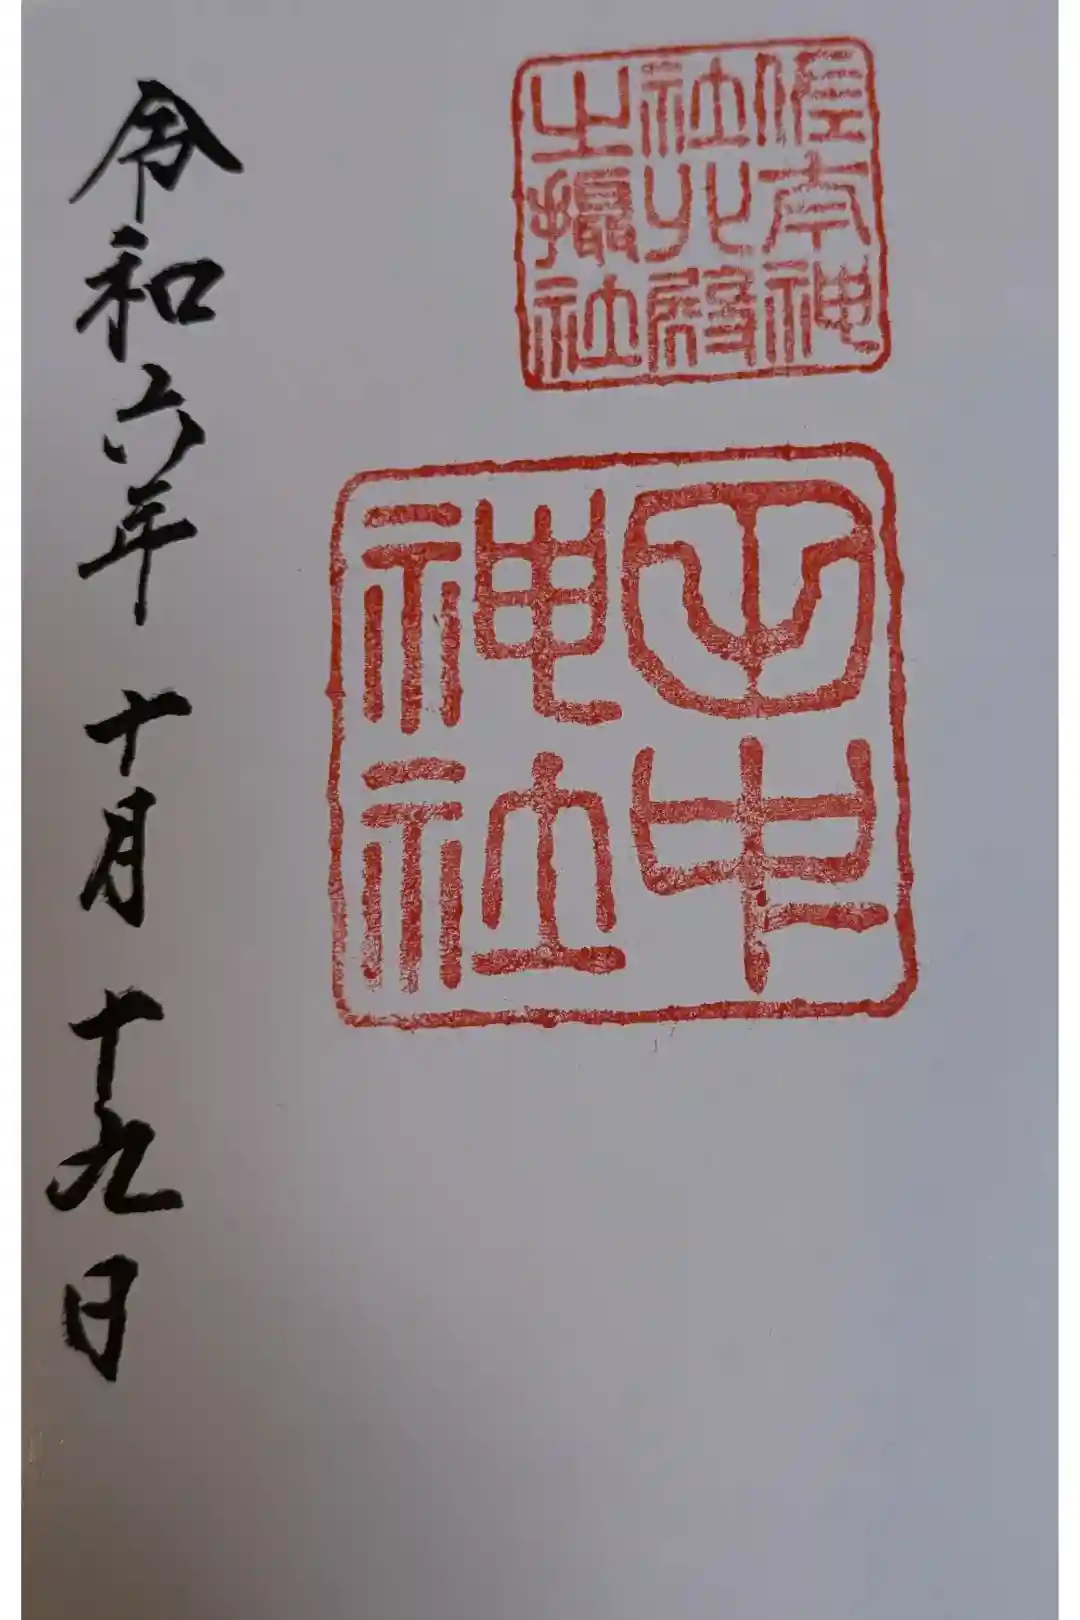 佐太神
社北殿
之攝社
田中
神社
令和六年 十月 十九日